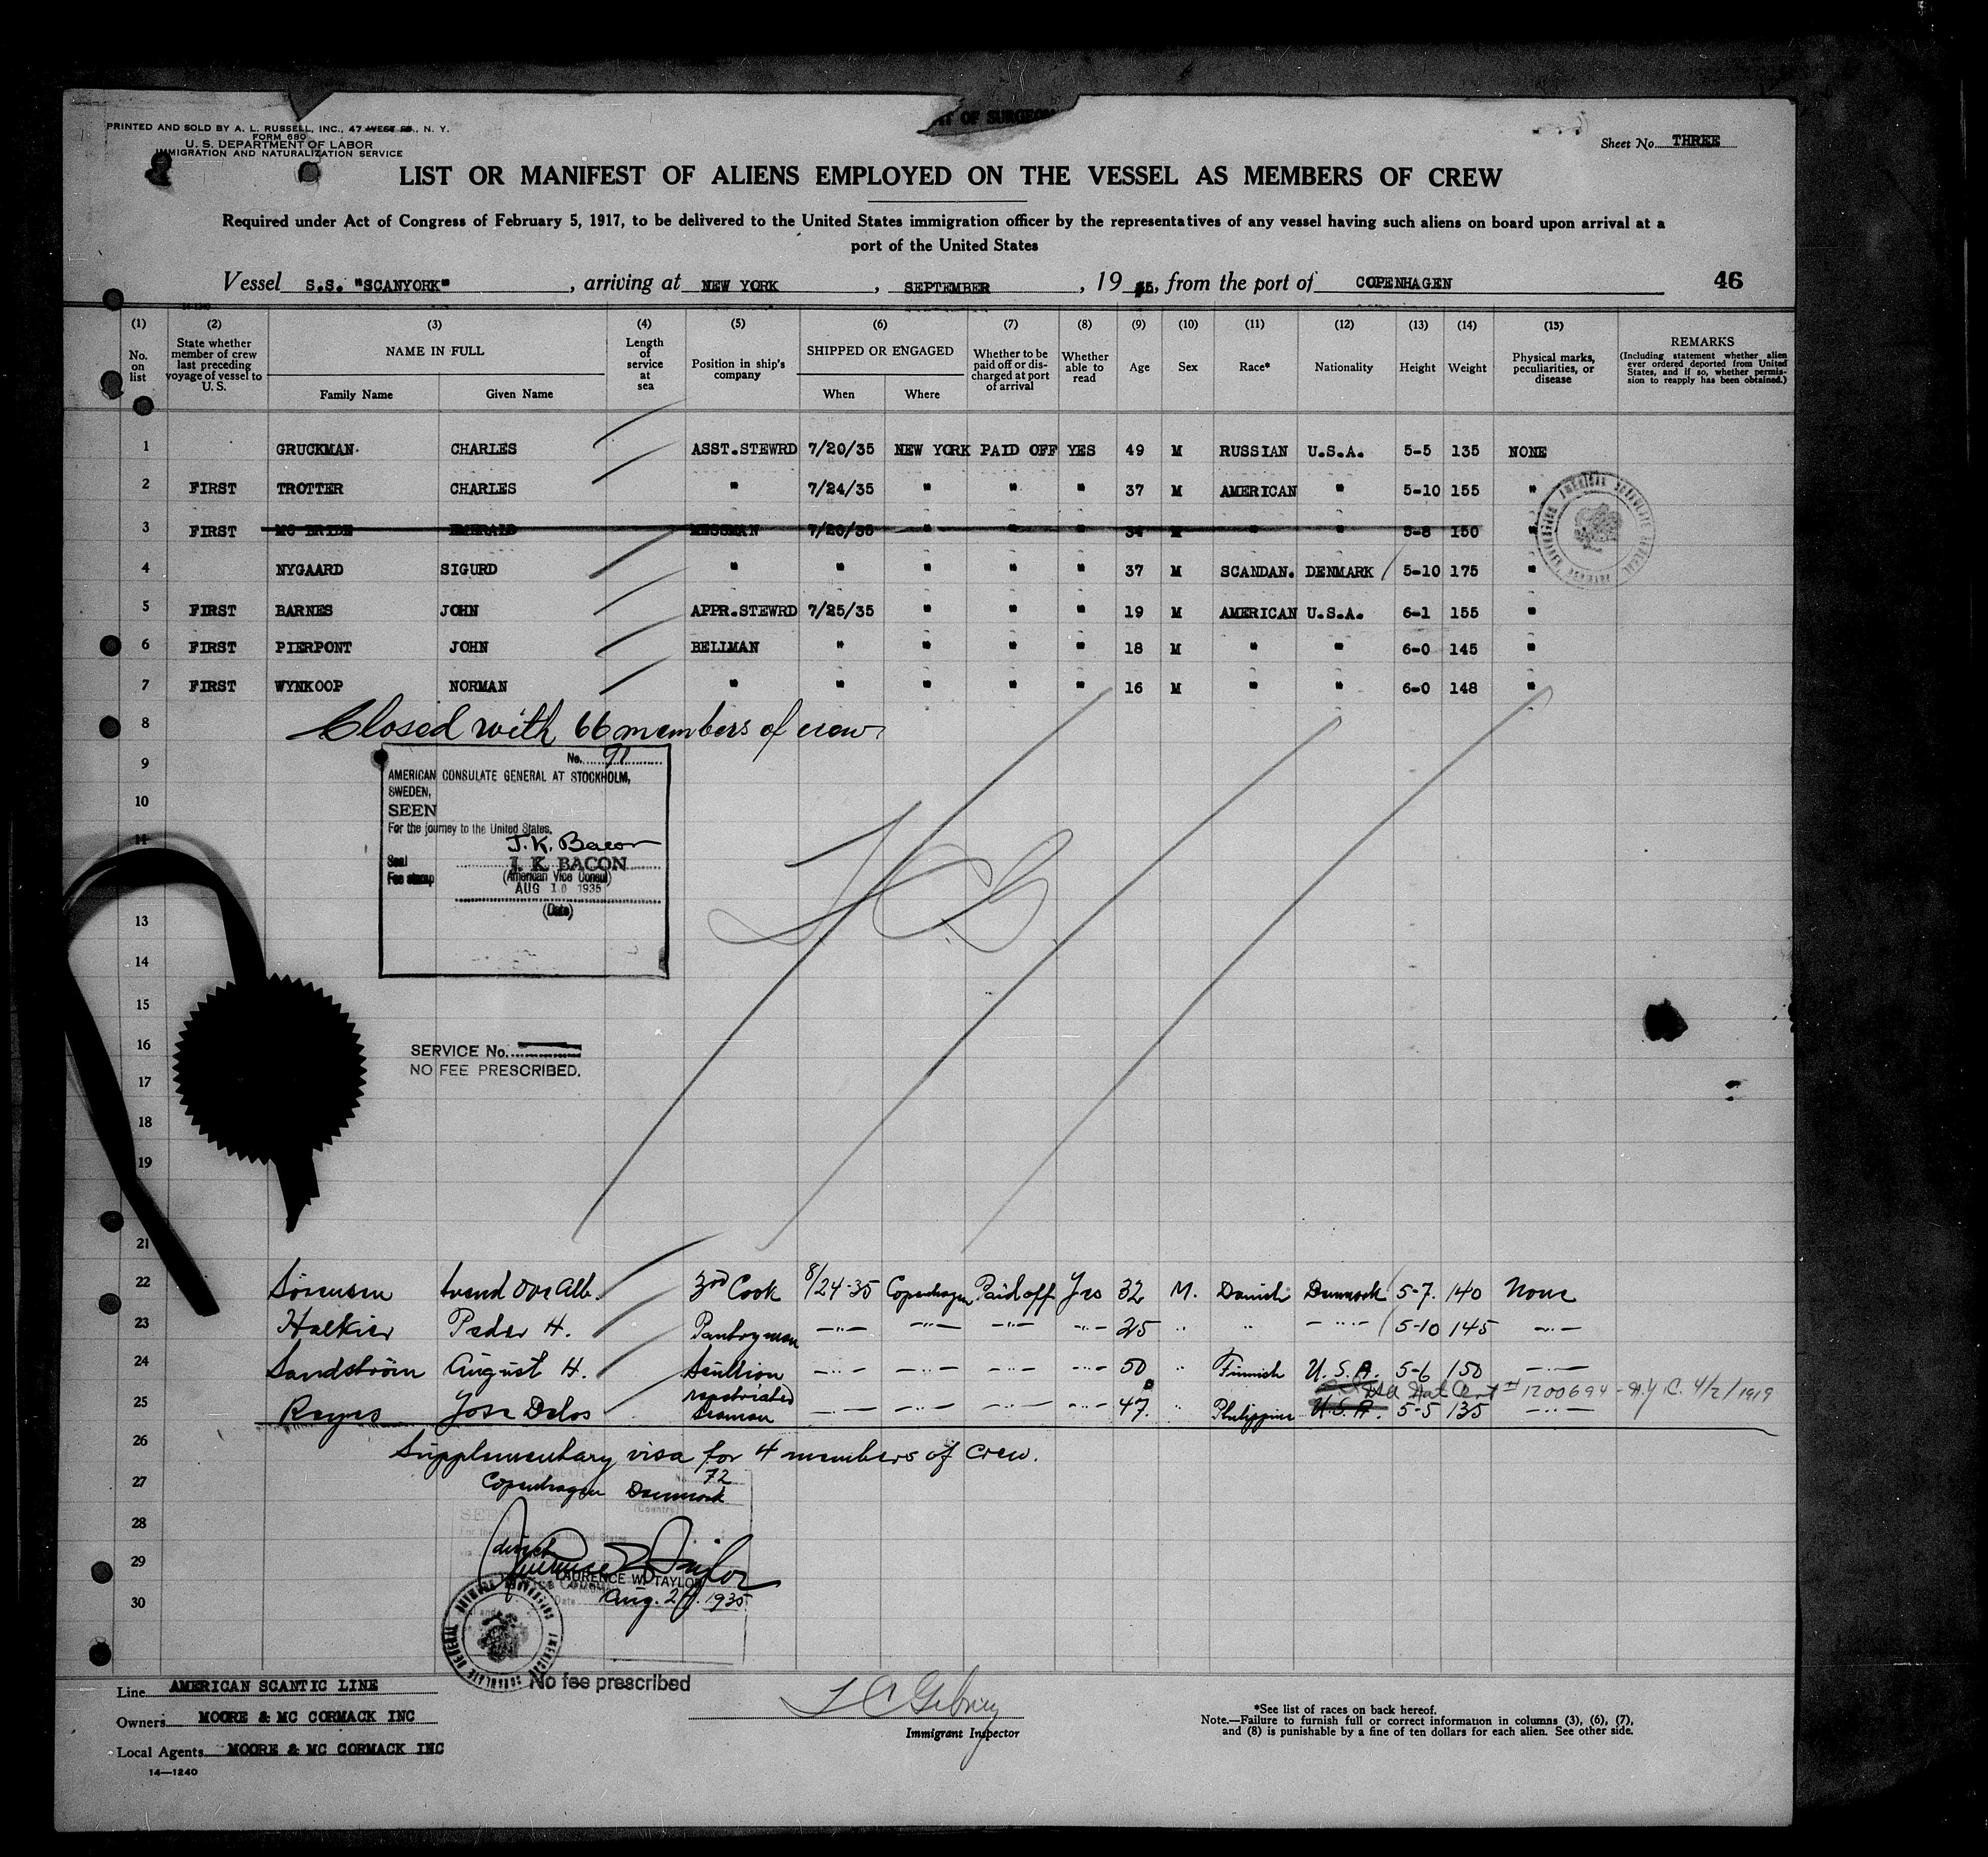 PRINTED AND SOLD BY A. L. RUSSELL, INC., 47 WEST ST., N. Y.
FORM 680
U. S. DEPARTMENT OF LABOR
IMMIGRATION AND NATURALIZATION SERVICE
OF SURGEON
Sheet No. THREE
LIST OR MANIFEST OF ALIENS EMPLOYED ON THE VESSEL AS MEMBERS OF CREW
Required under Act of Congress of February 5, 1917, to be delivered to the United States immigration officer by the representatives of any vessel having such aliens on board upon arrival at a
port of the United States
Vessel S.S. "SCANYORK", arriving at NEW YORK, SEPTEMBER, 1935, from the port of COPENHAGEN 46
(1) No. on list
(2) State whether member of crew last preceding voyage of vessel to U. S.
(3) NAME IN FULL Family Name Given Name
(4) Length of service at sea
(5) Position in ship's company
(6) SHIPPED OR ENGAGED When Where
(7) Whether to be paid off or discharged at port of arrival
(8) Whether able to read
(9) Age
(10) Sex
(11) Race*
(12) Nationality
(13) Height
(14) Weight
(15) Physical marks, peculiarities, or disease
REMARKS (Including statement whether alien ever ordered deported from United States, and if so, whether permission to reapply has been obtained.)
1 GRUCKMAN CHARLES ASST.STEWRD 7/20/35 NEW YORK PAID OFF YES 49 M RUSSIAN U.S.A. 5-5 135 NONE
2 FIRST TROTTER CHARLES " 7/24/35 " " " 37 M AMERICAN " 5-10 155 "
3 FIRST MC BRIDE EMERAID MESSMAN 7/20/35 " " " 34 M " " 5-8 150 "
4 NYGAARD SIGURD " " " " " 37 M SCANDAN. DENMARK 5-10 175 "
5 FIRST BARNES JOHN APPR.STEWRD 7/25/35 " " " 19 M AMERICAN U.S.A. 6-1 155 "
6 FIRST PIERPONT JOHN BELLMAN " " " " 18 M " " 6-0 145 "
7 FIRST WYNKOOP NORMAN " " " " " 16 M " " 6-0 148 "
8 Closed with 66 members of crew.
9
10
11
13
14
15
16
17
18
19
21
No. 91
AMERICAN CONSULATE GENERAL AT STOCKHOLM,
SWEDEN,
SEEN
For the journey to the United States.
J.K. Bacon
Seal J. K. BACON
Fee stamp (American Vice Consul)
AUG 10 1935
(Date)
SERVICE No.
NO FEE PRESCRIBED.
22 Sörensen Svend Ove Alb. 3rd Cook 8/24-35 Copenhagen Paid off Yes 32 M. Danish Denmark 5-7. 140 None
23 Halkier Peder H. Pantryman 25 5-10 145
24 Sandström August H. Scullion 50 Finnish U.S.A. 5-6 150
Nat Cert #1200694 - N.Y.C. 4/2/1919
25 Reyes Jose Delos repatriated Seaman 47. Philippine U.S.A. 5-5 135
26 Supplementary visa for 4 members of crew.
27 Copenhagen Denmark 72
(Country)
28 SEEN
For the journey to the United States
direct
29 LAURENCE W. TAYLOR
30 Date Aug. 24. 1935
No fee prescribed
Line AMERICAN SCANTIC LINE
Owners MOORE & MC CORMACK INC
Local Agents MOORE & MC CORMACK INC
14—1240
Immigrant Inspector
*See list of races on back hereof.
Note.—Failure to furnish full or correct information in columns (3), (6), (7),
and (8) is punishable by a fine of ten dollars for each alien. See other side.